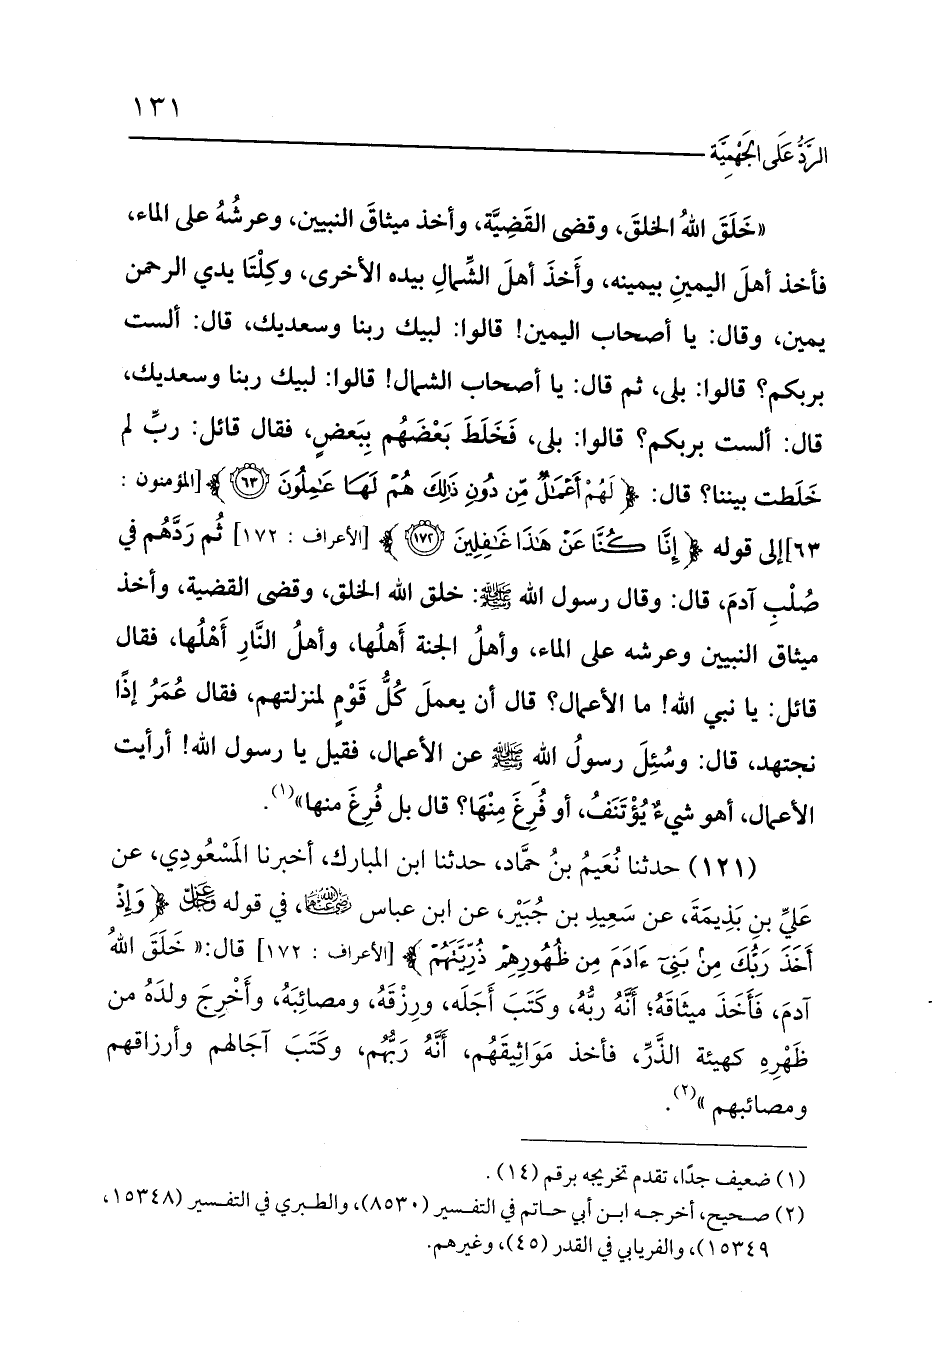 ١٣١
الرَّدُّ عَلَى الجَهْمِيَّة
«خَلَقَ اللهُ الخلقَ، وقضى القَضِيَّة، وأخذ ميثاقَ النبيين، وعرشُهُ على الماء،
فأخذ أهلَ اليمينِ بيمينه، وأَخذَ أهلَ الشِّمالِ بيده الأخرى، وكِلْتَا يدي الرحمن
يمين، وقال: يا أصحاب اليمين! قالوا: لبيك ربنا وسعديك، قال: ألست
بربكم؟ قالوا: بلى، ثم قال: يا أصحاب الشمال! قالوا: لبيك ربنا وسعديك،
قال: ألست بربكم؟ قالوا: بلى، فَخَلَطَ بَعْضَهُم بِبَعضٍ، فقال قائل: ربِّ لم
خَلَطت بيننا؟ قال: ﴿ لَهُمْ أَعْمَٰلٌ مِّن دُونِ ذَٰلِكَ هُمْ لَهَا عَٰمِلُونَ ٦٣ ﴾ [المؤمنون :
٦٣] إلى قوله ﴿ إِنَّا كُنَّا عَنْ هَٰذَا غَٰفِلِينَ ١٧٢ ﴾ [الأعراف : ١٧٢] ثُم رَدَّهُم في
صُلْبِ آدمَ، قال: وقال رسول الله ﷺ: خلق الله الخلق، وقضى القضية، وأخذ
ميثاق النبيين وعرشه على الماء، وأهلُ الجنة أَهلُها، وأهلُ النَّارِ أَهْلُها، فقال
قائل: يا نبي الله! ما الأعمال؟ قال أن يعملَ كُلُّ قَوْمٍ لمنزلتهم، فقال عُمَرُ إذًا
نجتهد، قال: وسُئِلَ رسولُ الله ﷺ عن الأعمال، فقيل يا رسول الله! أرأيت
الأعمال، أهو شيءٌ يُؤْتَنَفُ، أو فُرِغَ مِنْهَا؟ قال بل فُرِغَ منها»(١).
(١٢١) حدثنا نُعَيمُ بنُ حمَّاد، حدثنا ابن المبارك، أخبرنا المَسْعُودي، عن
عَليِّ بنِ بَذِيمَةَ، عن سَعِيدِ بن جُبَيْر، عن ابن عباس رضي الله عنهما، في قوله عز وجل ﴿ وَإِذْ
أَخَذَ رَبُّكَ مِنۢ بَنِىٓ ءَادَمَ مِن ظُهُورِهِمْ ذُرِّيَّتَهُمْ ﴾ [الأعراف : ١٧٢] قال:« خَلَقَ اللهُ
آدمَ، فَأَخذَ ميثَاقَهُ؛ أنَّهُ ربُّهُ، وكَتَبَ أجَلَه، ورِزْقَهُ، ومصائِبَهُ، وأَخْرِجَ ولدَهُ من
ظَهْرِهِ كهيئة الذَّرِّ، فأخذ مَوَاثِيقَهُم، أَنَّهُ رَبُّهُم، وكَتَبَ آجالهم وأرزاقهم
ومصائبهم »(٢).
(١) ضعيف جدًا، تقدم تخريجه برقم (١٤).
(٢) صحيح، أخرجه ابن أبي حاتم في التفسير (٨٥٣٠)، والطبري في التفسير (١٥٣٤٨،
١٥٣٤٩)، والفريابي في القدر (٤٥)، وغيرهم.